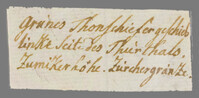 grünes Thonschiefergeschieb
linke Seite des Thurthals
Zumikerhöhe. Zürchergränze.